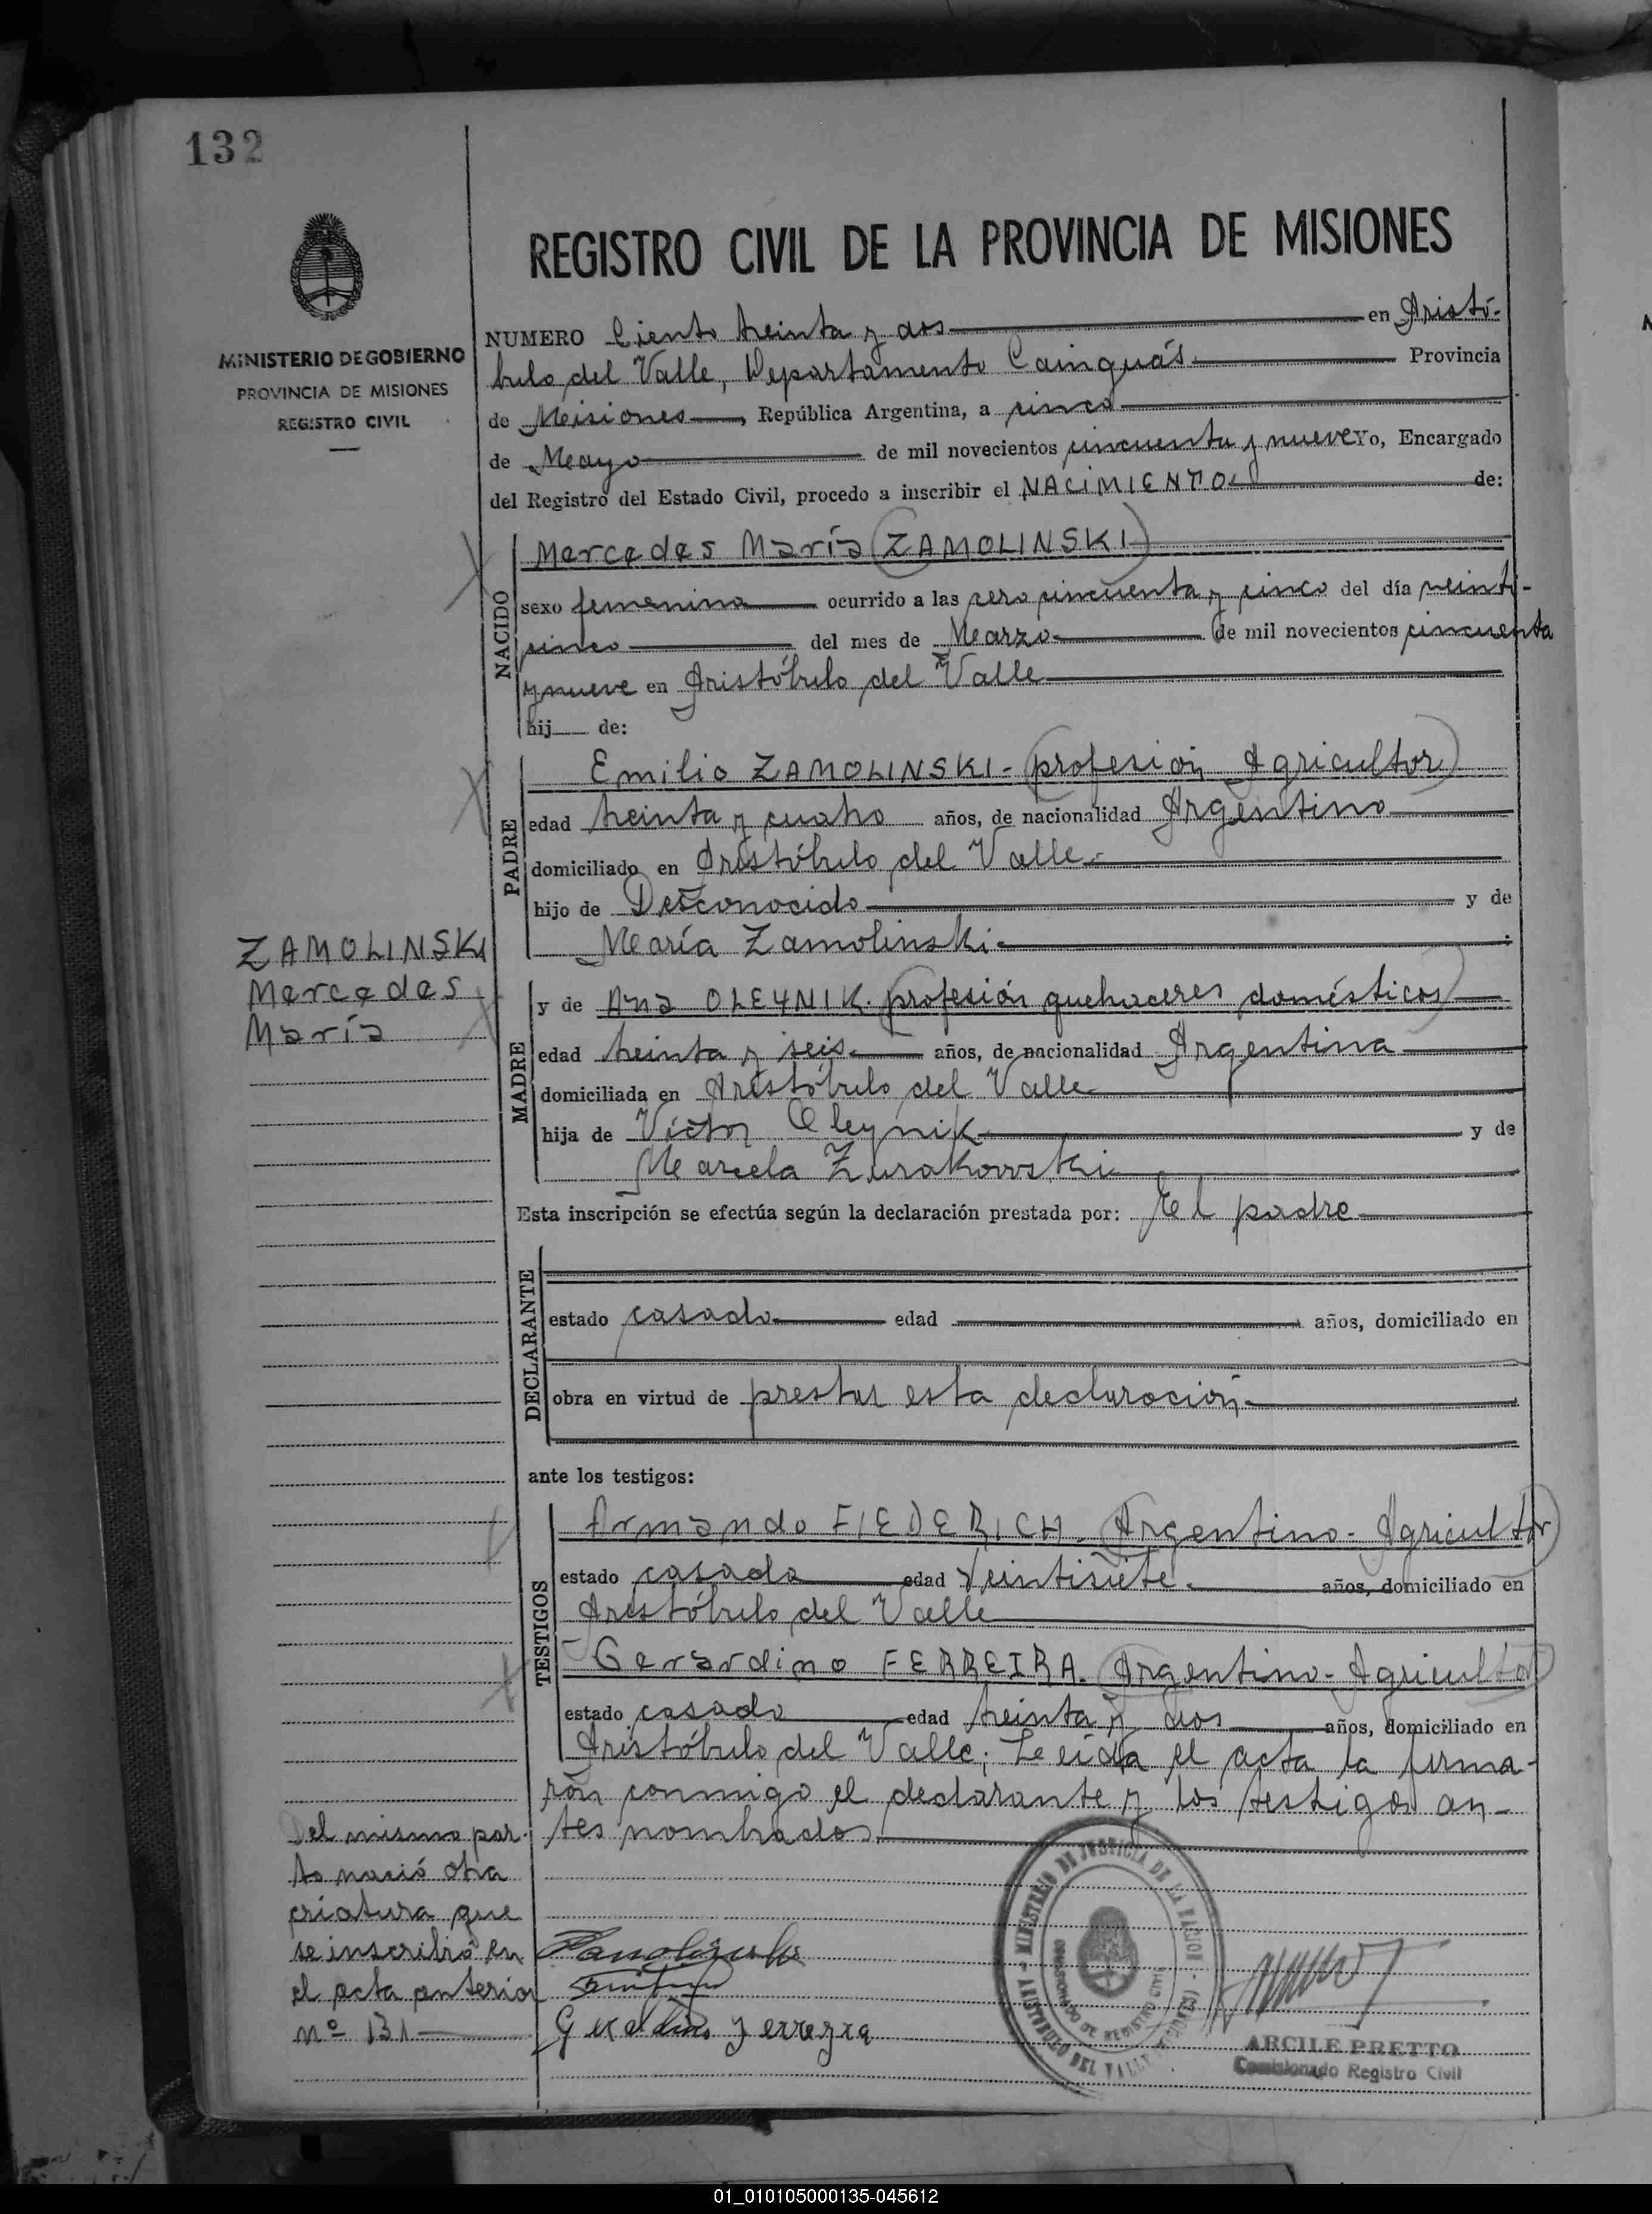 132
REGISTRO CIVIL DE LA PROVINCIA DE MISIONES
MINISTERIO DE GOBIERNO
PROVINCIA DE MISIONES
REGISTRO CIVIL
NUMERO Ciento treinta y dos en Aristó-
bulo del Valle, Departamento Cainguás Provincia
de Misiones, República Argentina, a cinco
de Mayo de mil novecientos cincuenta y nueve Yo, Encargado
del Registro del Estado Civil, procedo a inscribir el NACIMIENTO de:
NACIDO
Mercedes María (ZAMOLINSKI)
sexo femenino ocurrido a las cero cincuenta y cinco del día veinti-
cinco del mes de Marzo de mil novecientos cincuenta
y nueve en Aristóbulo del Valle
hij de:
PADRE
Emilio ZAMOLINSKI - (profesión Agricultor)
edad treinta y cuatro años, de nacionalidad Argentino
domiciliado en Aristóbulo del Valle
hijo de Desconocido y de
María Zamolinski
ZAMOLINSKI
Mercedes
María
MADRE
y de Ana OLEYNIK. (profesión quehaceres domésticos)
edad treinta y seis años, de nacionalidad Argentina
domiciliada en Aristóbulo del Valle
hija de Víctor Oleynik y de
Mariela Zurakowski
Esta inscripción se efectúa según la declaración prestada por: El padre
DECLARANTE
estado casado edad años, domiciliado en
obra en virtud de prestar esta declaración
ante los testigos:
TESTIGOS
Armando FIEDERICH. (Argentino - Agricultor)
estado casado edad Veintisiete años, domiciliado en
Aristóbulo del Valle
Gerardino FERREIRA. (Argentino - Agricultor)
estado casado edad treinta y dos años, domiciliado en
Aristóbulo del Valle; Leída el acta la firma-
rón conmigo el declarante y los testigos an-
tes nombrados
Del mismo par-
to nació otra
criatura que
se inscribió en
el acta anterior
nº 131
MINISTERIO DE JUSTICIA DE LA NACION
ARISTOBULO DEL VALLE (MISIONES)
COMISIONADO DE REGISTRO CIVIL
ARCILE PRETTO
Comisionado Registro Civil
01_010105000135-045612